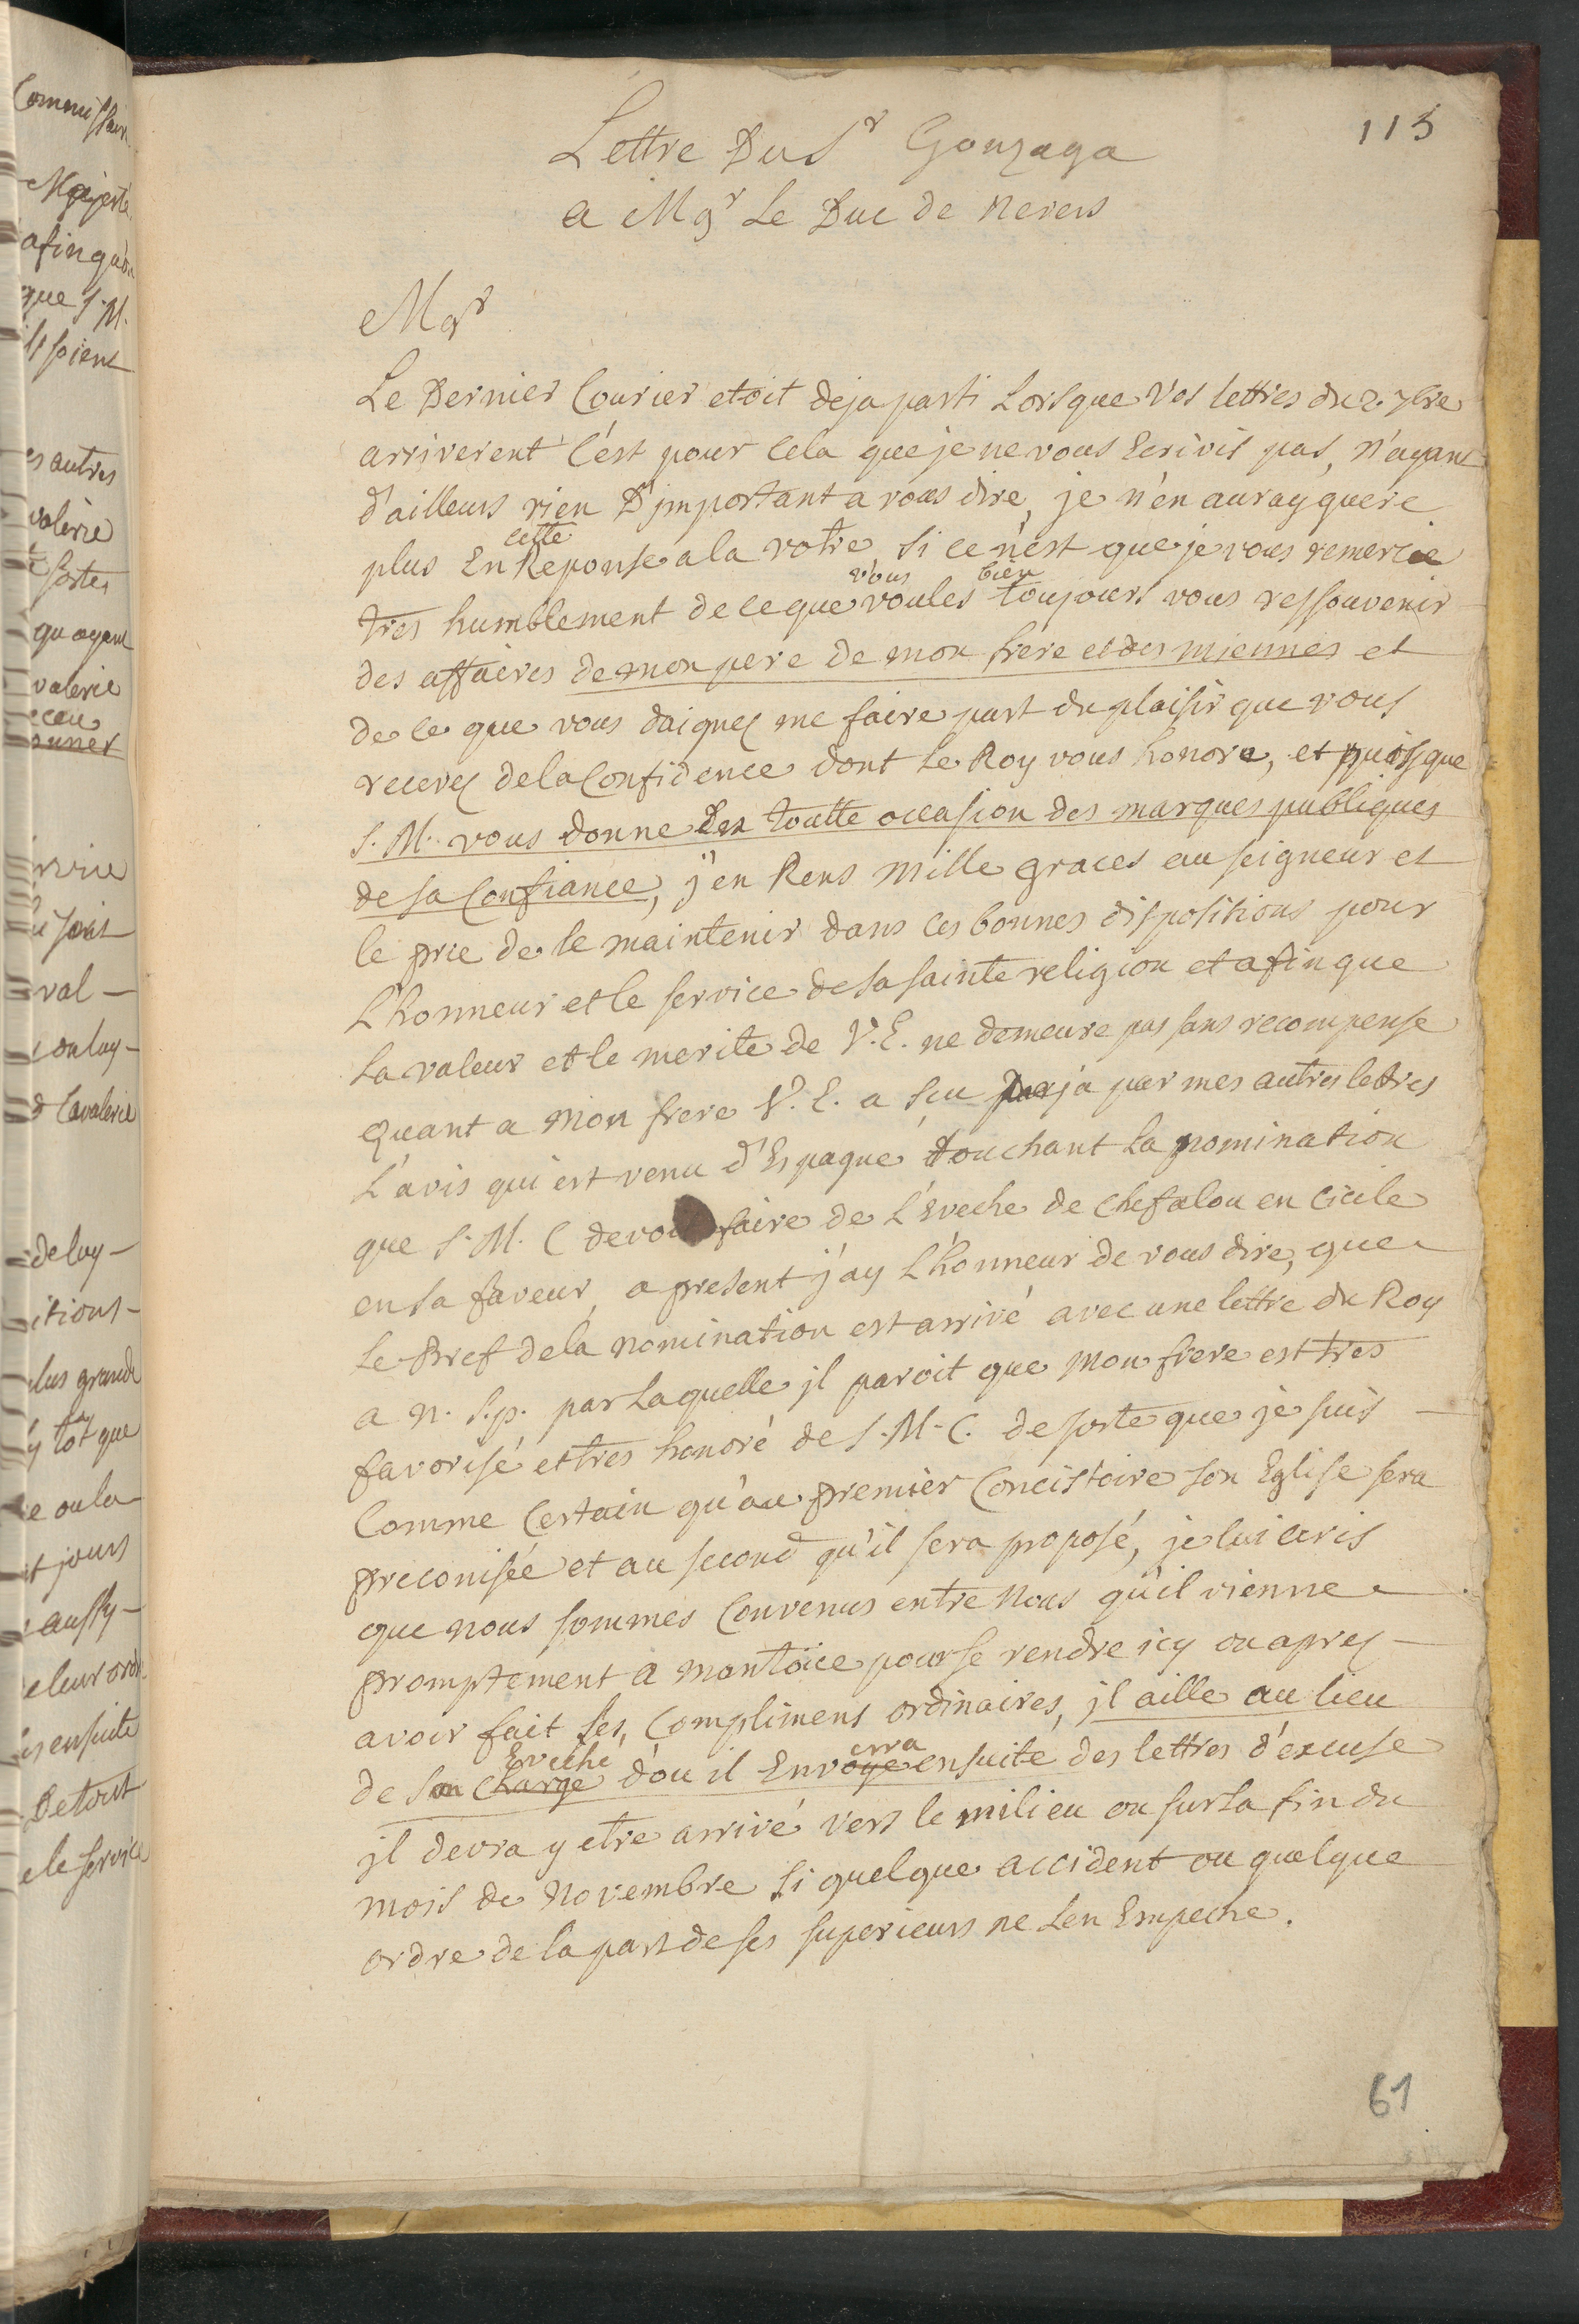 115
Lettre Du Sr Gonzaga
a Mgr Le Duc de Nevers
Mgr
Le Dernier Courier etoit deja parti Lorsque Vos lettres du 2. 7bre
arriverent C'est pour Cela que je ne vous Ecrivis pas, N'ayant
d'ailleurs rien D'important a vous dire, je n'en auray guere
cette
plus En Reponse a la votre si ce n'est que je vous remercie
vous bien
tres humblement de ce que voules toujours vous ressouvenir
des affaires de mon pere de mon frere et des miennes et
de ce que vous daignez me faire part du plaisir que vous
recevez de la Confidence dont le Roy vous honore, et puisque
S. M. vous donne En toutte occasion des marques publiques
de sa Confiance, j'en Rens Mille graces au seigneur et
le prie de le maintenir dans ces bonnes dispositions pour
L'honneur et le service de sa sainte religion et afin que
La valeur et le merite de V. E. ne demeure pas sans recompense
Quant a Mon frere V. E. a sçu ja par mes autres lettres
L'avis qui est venu d'Espagne touchant La nomination
que S. M. C devoit faire de L'Eveche de Chefalou en Cicile
en sa faveur, a present j'ay L'honneur de vous dire, que
Le Bref de la nomination est arrivé avec une lettre du Roy
a N. S. p. par Laquelle il paroit que Mon frere est tres
favorisé et tres honoré de S. M. C. de sorte que je suis
Comme Certain qu'au premier Concistoire son Eglise sera
preconisée et au second qu'il sera proposé, je lui ecris
que nous sommes Convenus entre Nous qu'il vienne
promptement a Mantoüe pour se rendre icy ou aprez
avoir fait ses Complimens ordinaires, il aille au lieu
Eveché erra
de son Charge d'ou il Envoye ensuite des lettres d'excuse
il devra y etre arrivé vers le milieu ou sur La fin du
mois de Novembre si quelque accident ou quelque
ordre de la part de ses superieurs ne L'en Empeche.
61
Majesté
afin qu'on
que S. M.
soient
es autres
valerie
sortes
qu ayant
valerie
val
Cavalerie
de luy
itions
plus grande
y tot que
e ou la
jours
aussy
e leur
ensuite
e le service